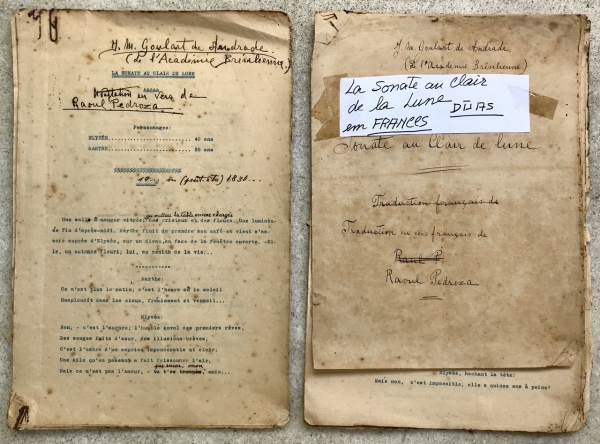 H. M. Goulart de Andrade
(de l'Académie Brésilienne)
LA SONATE AU CLAIR DE LUNE
en vers de
Raoul Pedroza
Personnages:
ELYSÉE........................ 40 ans
MARTHE........................ 25 ans
19... ou (peut-être) 1830...
au milieu la table encore chargée
Une salle à manger vitrée, des cristaux et des fleurs. Une
fin d'après-midi. Marthe finit de prendre son café et vient s'as-
seoir auprès d'Elysée, sur un divan, en face de la fenêtre ouverte. -El-
le, un automne fleuri; lui, au zénith de la vie...
Marthe:
Ce n'est plus le matin, c'est l'heure où le soleil
Resplendit dans les cieux, frémissant et vermeil...
Elysée:
Non, - c'est l'aurore, l'humble envol des premiers rêves,
Des songes faits d'azur, des illusions brèves,
C'est l'ombre d'un caprice impondérable et clair;
Une aile qu'en passant a fait frissonner l'air,
Mais ce n'est pas l'amour, -
H. M. Goulart de Andrade
(de l'Académie Brésilienne)
La Sonate au Clair
de la Lune DUAS
em FRANCES
Sonate au Clair de lune
Traduction française de
Traduction en vers français de
Raoul P
Raoul Pedroza
Elysée, hochant la tête:
Mais non, c'est impossible; elle a quinze ans à peine!